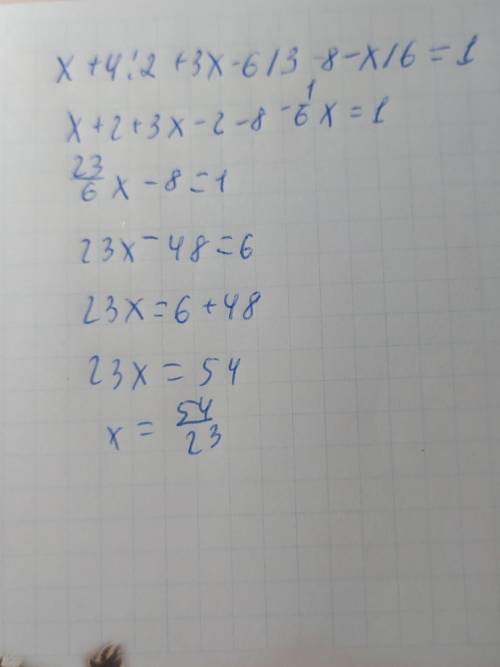 x + 4 : 2 + 3x - 6 / 3 - 8 - x / 6 = 1
x + 2 + 3x - 2 - 8 - 1/6 x = 1
23/6 x - 8 = 1
23x - 48 = 6
23x = 6 + 48
23x = 54
x = 54/23